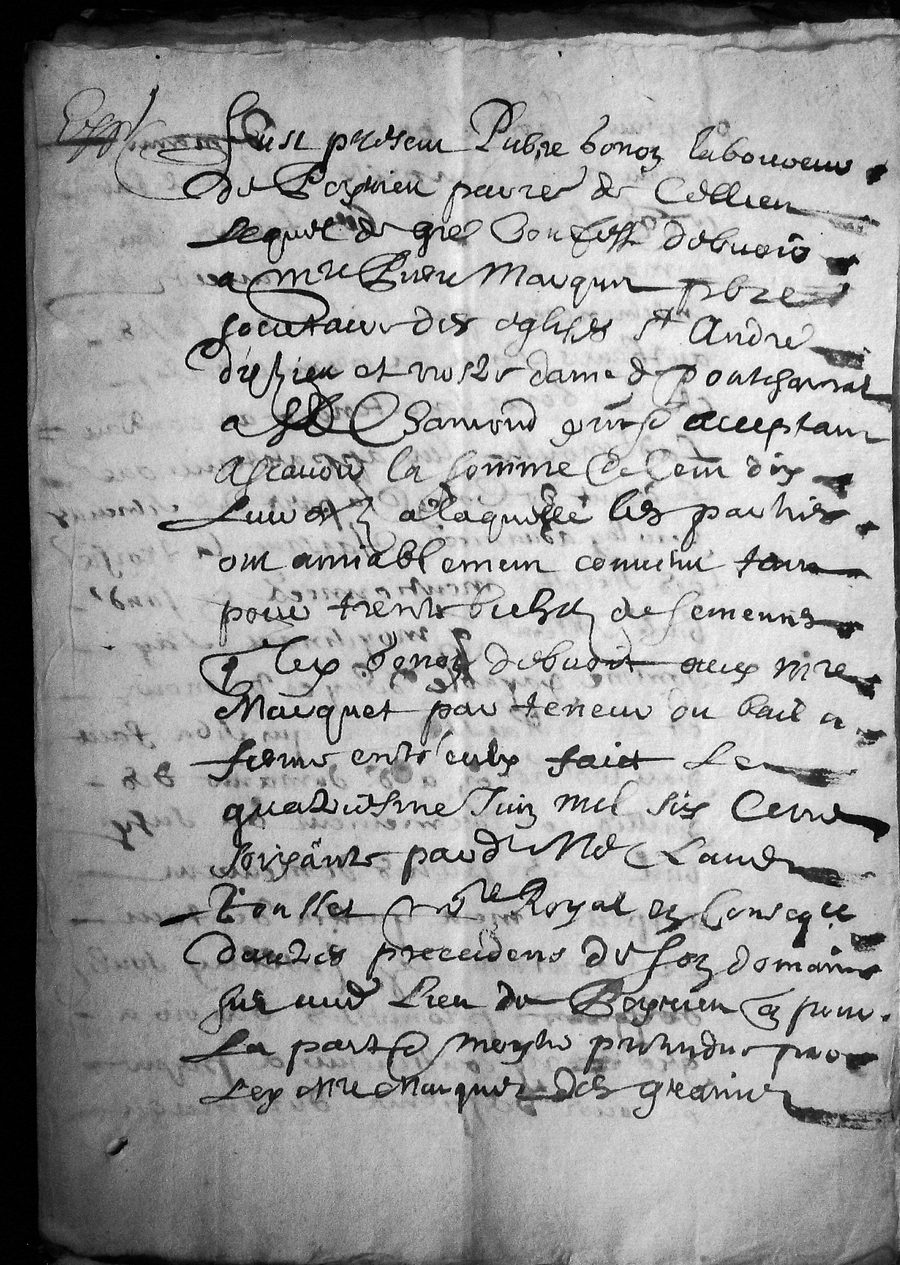 Fust present Pierre bonon laboureur
de Peyrieu parre de Cellieu
Lequel de gré Confesse debuoir
a Mre Pierre Marquet pbre
societaire des eglises St André
d'Izieu et nostre dame de pontcharrat
a St Chamond pnt & acceptant
Ascavoir la somme de Cent dix
Liures a laquelle les parties
ont amiablement convenu tant
pour trente bichetz de semence
q led bonon debuoit aud mre
Marquet par teneur du bail a
ferme entr'eulx faict Le
quatriesme Juin mil six Cents
soixante pard Me Claude
Tousset Nre Royal en conseqce
daultres precedens de son domaine
sus aud Lieu de Peyrieu & pour
La part & moytié pretendue par
Led Mre Marquet des greniers